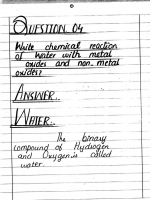 QUESTION 04
Write chemical reaction
of Water with metal
oxides and non-metal
oxides?
ANSWER..
WATER..
The binary
compound of Hydrogen
and Oxygen is called
water